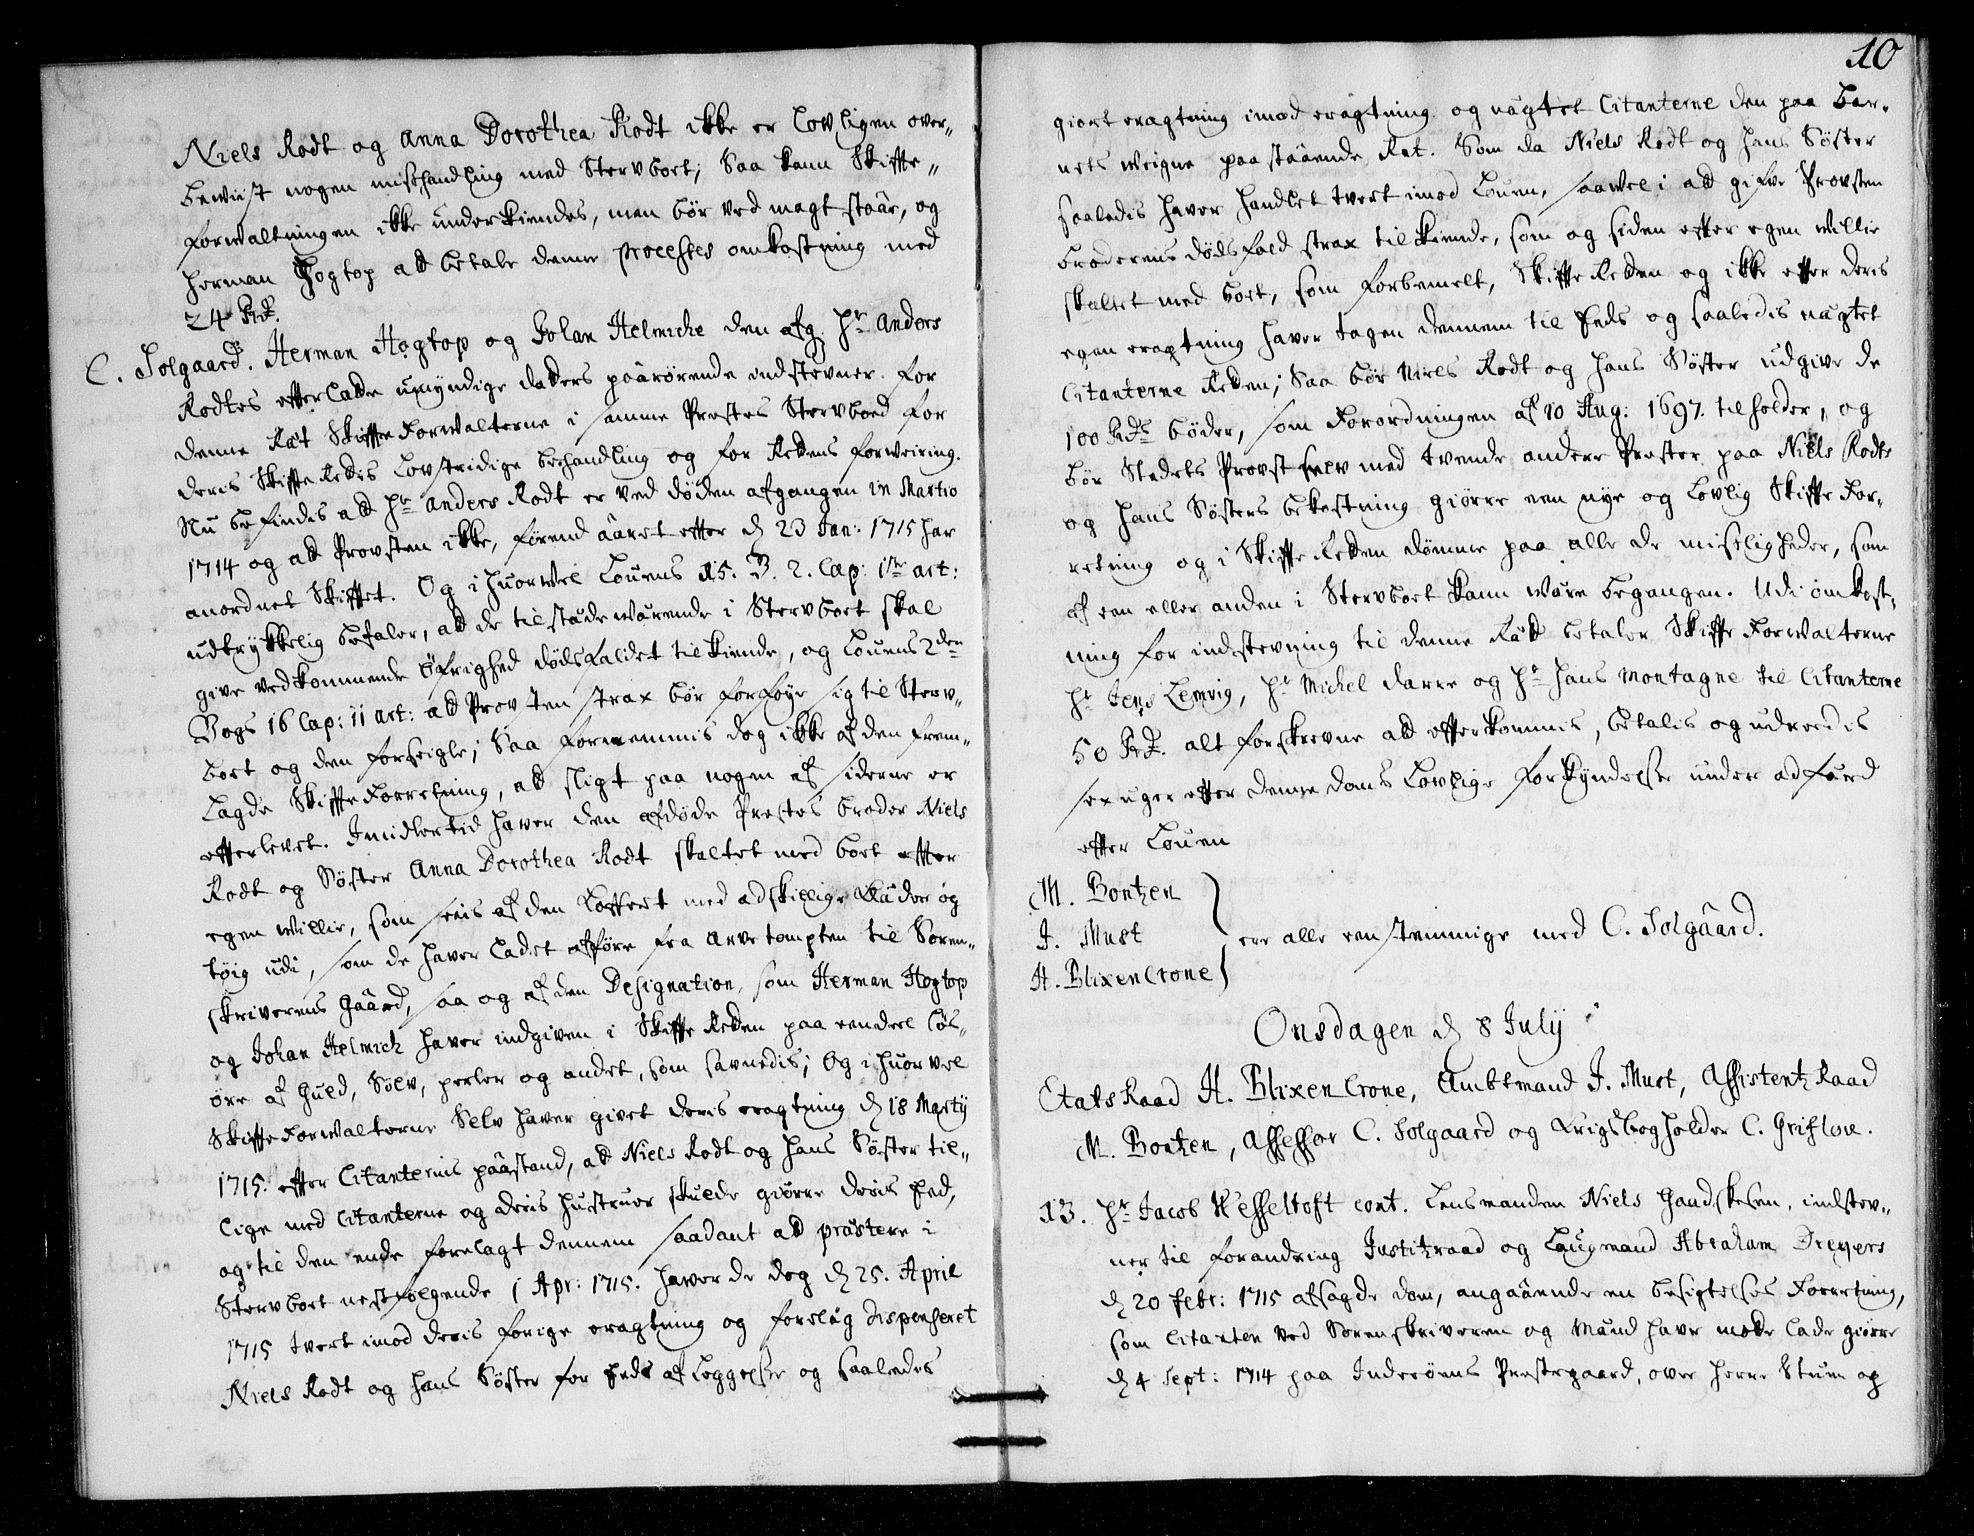 Niels Rodt og Anna Dorothea Rodt ikke er Lovligen over-
beviist nogen mishandling med Stervboet; Saa kann Skiffte-
forwaltningen ikke underkiendes, men bör ved magt staar, og
Herman Hogtop ad betale denne processes omkostning med
24 Rdr.
C. Solgaard. Herman Hogtop og Johan Helmiche den afg. Hr Anders
Rodtes efterladde umyndige daders paarørende indstevner for
denne Ræt Skiffte Forwalterne i samme Prestes Stervboed for
deris Skiffte Rettes Lovstridige behandling og for Rettens forweiring.
Nu befindes ad Hr Anders Rodt er ved döden afgangen in Martio
1714 og ad Provsten ikke, förend aaret efter d 23 Jan: 1715 har
anordnet Skifftet. Og i huorvel Louens 15. B. 2. Cap: 1te art:
udtrykkelig befaler, ad de tilstædeværende i Stervboet skal
give vedkommende öfrighed dödsfaldet tilkiende, og Louens 2den
Bogs 16 Cap: 11 art: ad Provsten strax bör forföye sig til Sterv-
boet og den forseigle; Saa fornemmis dog ikke af den frem-
lagde Skiffte Forretning, ad sligt paa nogen af siderne er
efterlevet. Imidlertid haver den afdöde Prestes broder Niels
Rodt og Söster Anna Dorothea Rodt skaltet med boet effter
egen Willie, som sees af den Koffert med adskillige Klæder og
töig udi, som de haver ladet afföre fra Arvetompten til Soren-
skriverens Gaard, saa og af den Designation, som Herman Hogtop
og Johan Helmich haver indgiven i Skiffte Retten paa eendeel Lös-
öre af Guld, Sölv, perler og andet, som savnedis; Og i huorvel
Skiffte Forwalterne Selv haver givet deris eragtning d 18 Martij
1715. efter Citanternis paastand, ad Niels Rodt og hans Söster til-
lige med Citanterne og deris hustruer skulde giörre deris Eed,
og til den ende forelagt dennem saadant ad præstere i
Stervboet nestfölgende 1 Apr: 1715. haver de dog d 25. April
1715 tvert imod deris forige eragtning og forslag dispenseret
Niels Rodt og hans Söster for Eeds aflæggelse og saaledes
10
giort eragtning imod eragtning og nægtet Citanterne den paa Bar-
nets weigne paastaaende Ret. Som da Niels Rodt og hans Söster
saaledis haver handlet tvert imod Louen, saavel i ad gifve Provsten
broderens dödsfald strax tilkiende, som og siden efter egen willie
skaltet med boet, som forbemelt, Skiffte Retten og ikke efter deris
egen eragtning haver tagen dennem til Eeds og saaledis nægtet
Citanterne Retten; Saa bör Niels Rodt og hans Söster udgive de
100 Rdrs böder, som Forordningen af 10 Aug: 1697. tilholder, og
bör Stedets Provst selv med tvende andre Prester paa Niels Rodts
og hans Sösters bekostning giörre een nye og Lovlig Skiffte For-
retning og i Skiffte Retten dömme paa alle de misligheder, som
af een eller anden i Stervboet kann være begangen. Udi omkost-
ning for indstevning til denne Ræt betaler Skiffte Forwalterne
Hr Jens Lemvig, Hr Michel Darre og Hr Hans Montagne til Citanterne
50 Rdr. alt forskrevne ad efterkommis, betalis og udreedis
sex uger efter denne doms Lovlige forkyndelse under adfærd
efter Louen
M. Bontzen
J. Must
H. Blixencrone
ere alle eenstemmige med C. Solgaard.
Onsdagen d 8 Julij
Etats Raad H. Blixencrone, Ambtmand J. Must, Assistentz Raad
M. Bontzen, Assessor C. Solgaard og Krigsbogholder C. Griflow.
13. Hr Jacob Hesseltoft cont. Lensmanden Niels Gaudskesen, indstev-
ner til forandring Justitzraad og Laugmand Abraham Dreyers
d 20 febr: 1715 afsagde dom, angaaende en besigtelses Forretning,
som Citanten ved Sorenskriveren og Mænd have mode lade giörre
d 4 Sept: 1714 paa Inderöens Prestegaard, over Herre Stuen og